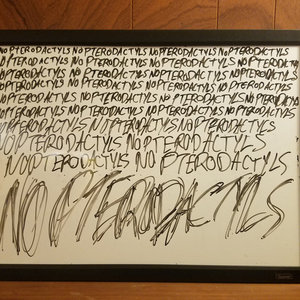 NO PTERODACTYLS NO PTERODACTYLS NO PTERODACTYLS NO PTERODACTYLS
NO PTERODACTYLS NO PTERODACTYLS NO PTERODACTYLS NO PTERODACTYLS
NO PTERODACTYLS NO PTERODACTYLS NO PTERODACTYLS NO PTERODACTYLS
NO PTERODACTYLS NO PTERODACTYLS NO PTERODACTYLS NO PTERODACTYLS
NO PTERODACTYLS NO PTERODACTYLS NO PTERODACTYLS NO PTERODACTYLS
NO PTERODACTYLS NO PTERODACTYLS NO PTERODACTYLS
NO PTERODACTYLS NO PTERODACTYLS NO PTERODACTYLS
NO PTERODACTYLS NO PTERODACTYLS
NO PTERODACTYLS NO PTERODACTYLS
NO PTERODACTYLS